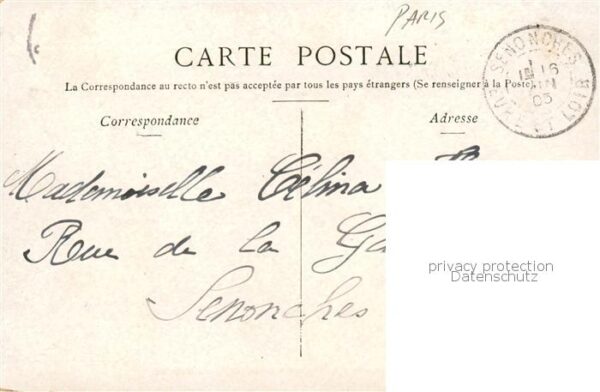 PARIS
CARTE POSTALE
La Correspondance au recto n'est pas acceptée par tous les pays étrangers (Se renseigner à la Poste)
Correspondance
Adresse
SENONCHES
16
05
EURE ET LOIR
Mademoiselle Célina
Rue de la
Senonches
privacy protection
Datenschutz